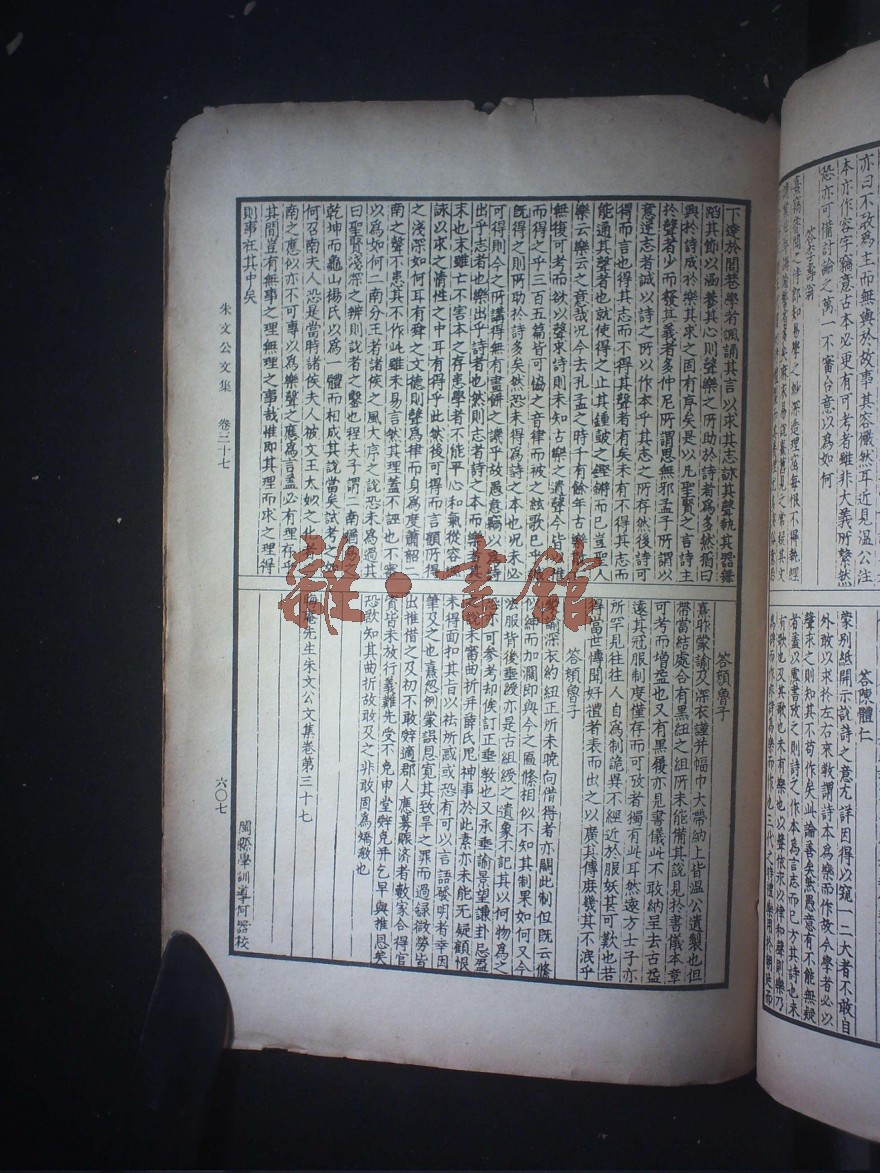 亦曰不改為主而無與於故事其容儼然耳近見溫公注
本亦作容字竊意古本必更有可考者雖非大義所繫然
恐亦可備討論之萬一不審台意以為如何
答李壽翁
熹竊嘗聞之侍郎知易學之妙深造理窟每恨不得執經
答陳體仁
蒙別紙開示說詩之意尤詳因得以窺一二大者不敢自
外敢以求於左右來教謂詩本為樂而作故今學者必以
聲求之則知其不苟作矣此論善矣然愚意有不能無疑
者蓋以虞書攷之則詩之作本為言志而已方其詩也未
有歌也及其歌也未有樂也以聲依永以律和聲則樂乃
為詩而作非詩為樂而作也三代之時禮樂用於朝廷而
下達於閭巷學者諷誦其言以求其志詠其聲執其器舞
蹈其節以涵養其心則聲樂之所助於詩者為多然猶曰
興於詩成於樂其求之固有序矣是以凡聖賢之言詩主
於聲者少而發其義者多仲尼所謂思無邪孟子所謂以
意逆志者誠以詩之所以作本乎其志之所存然後詩可
得而言也得其志而不得其聲者有矣未有不得其志而
能通其聲者也就使得之止其鍾鼓之鏗鏘而已豈聖人
樂云樂云之意哉況今去孔孟之時千有餘年古樂
無復可考而欲以聲求詩則未知古樂之遺聲今皆以推
而得之乎三百五篇皆可協之音律而被之絃歌已
既得之則所助於詩多矣然恐未得為詩之本也況未必
可得則今之所講得無有畫餅之譏乎故愚意竊以為詩
出乎志者也樂出乎詩者也然則志者詩之本而樂者其
末也末雖亡不害本之存患學者不能平心和氣從容諷
詠以求之情性之中耳有得乎此然後可得而言顧所得
之淺深如何耳有舜之文德則聲為律而身為度簫韶二
南之聲不患其不作此雖未易言然其理蓋不誣也不審
以為如何二南分王者諸侯之風大序之說恐未為過其
曰聖賢淺深之辨則說者之鑿也程夫子謂二南猶易之
乾坤而龜山楊氏以為一體而相成其說當矣試考之如
何召南夫人恐是當時諸侯夫人被文王太姒之化者
南之應似亦不可專以為樂聲之應為言蓋必有理存乎
其間豈有無事之理無理之事哉惟即其理而求之理得
則事在其中矣
答顏魯子
熹昨蒙諭及深衣謹并幅巾大帶納上皆溫公遺製也但
帶當結處合有黑紐之組所未能備其說見於書儀本章
可考而增益也又有黑履亦見書儀此不敢納呈去古益
遠其冠服制度僅存而可攷者獨有此耳然遠方士子亦
所罕見往往人自為制詭異不經近於服妖甚可歎也若
得當世博聞好禮者表而出之以廣其傳庶幾其不泯乎
答顏魯子
蒙諭深衣約紐正所未曉向借得者亦闕此制但既云絛
似紳而加濶即與今之匾絛相似不知其制果如何又今
法服背後垂綬亦是古組綬之遺象不記其以何物為之
亦可參考却俟訂正垂敎也又承垂諭景望謙卦忌盈
未審曲折并薛氏鬼神事於此素亦未能无疑顧恨
未得面扣其旨以祛所惑或恐有可以言語發明者幸因
筆及之也熹忽例蒙誤恩寬其致旱之罪而過錄微勞皆
出推借之及初不敢辭適郡人應募賑济者數家合得官
資皆未放行義難先受不免申堂辭免并乞早與推恩矣
恐欲知其曲折故敢及之非敢固為矯激也
晦庵先生朱文公文集卷第三十七
閩縣學訓導何器校
朱文公文集 卷三十七
六〇七
雜·書館